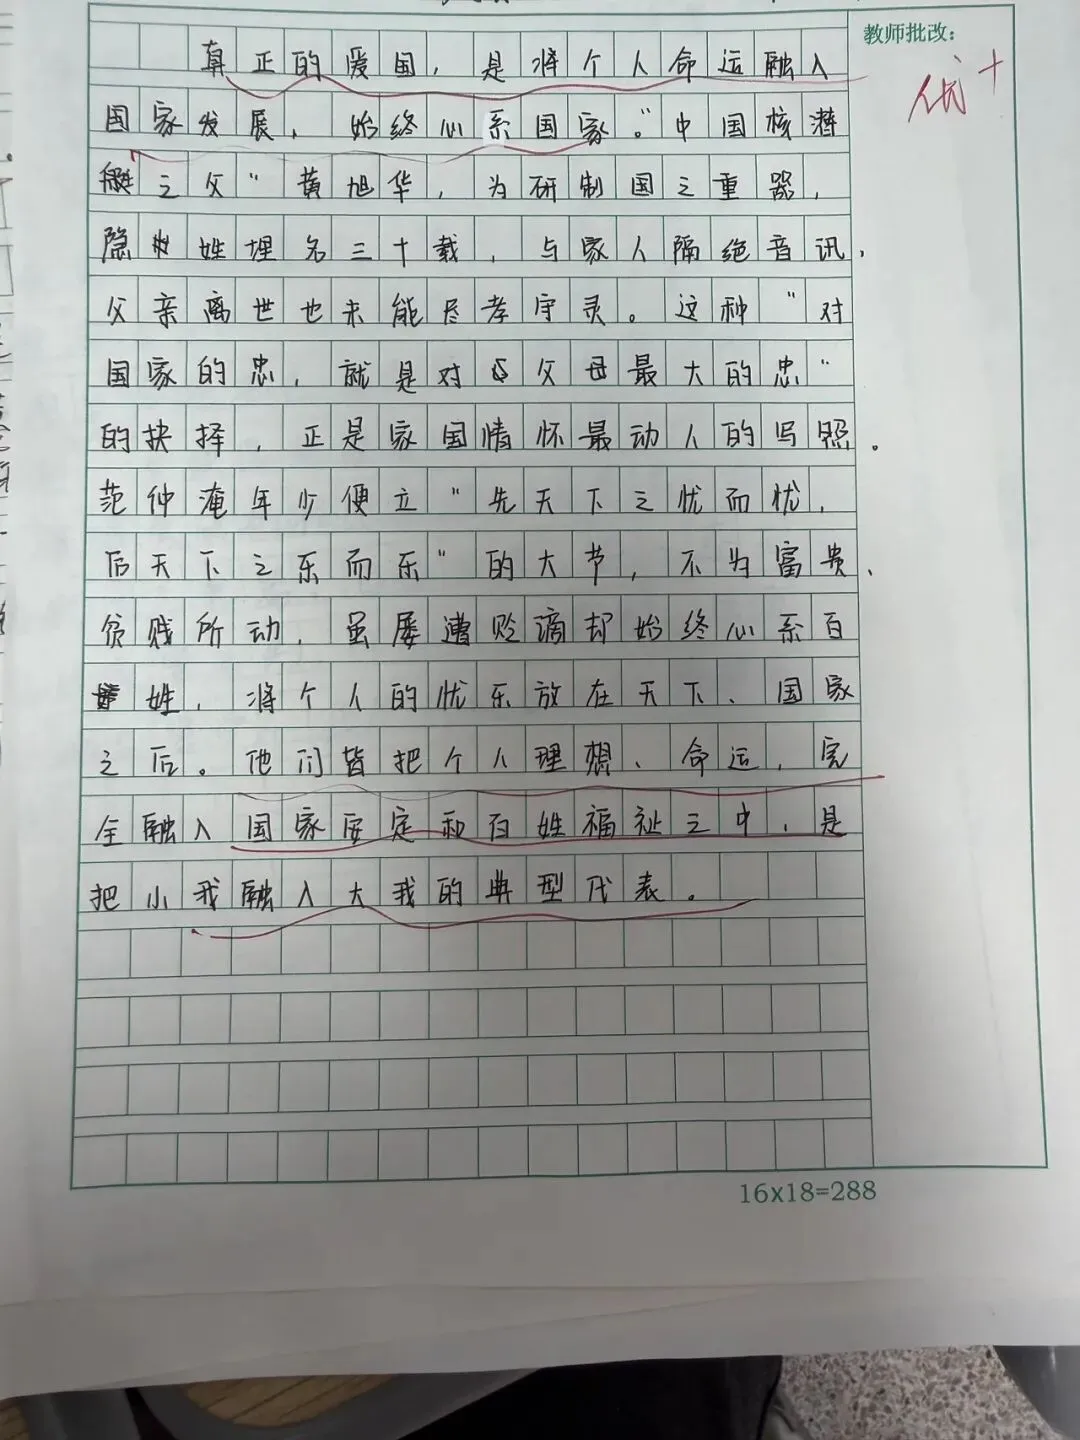 教师批改：
优+
真正的爱国，是将个人命运融入
国家发展，始终心系国家。"中国核潜
艇之父"黄旭华，为研制国之重器，
隐姓埋名三十载，与家人隔绝音讯，
父亲离世也未能尽孝守灵。这种"对
国家的忠，就是对父母最大的忠"
的抉择，正是家国情怀最动人的写照。
范仲淹年少便立"先天下之忧而忧，
后天下之乐而乐"的大节，不为富贵、
贫贱所动，虽屡遭贬谪却始终心系百
姓，将个人的忧乐放在天下、国家
之后。他们皆把个人理想、命运，完
全融入国家安定和百姓福祉之中，是
把小我融入大我的典型代表。
16x18=288